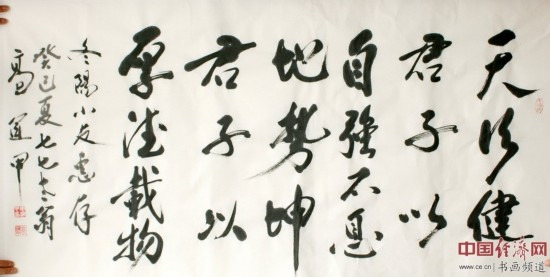 天行健
君子以
自强不息
地势坤
君子以
厚德载物
冬阳小友惠存
癸巳夏七七六翁
高运甲
中国经济网
www.ce.cn 书画频道